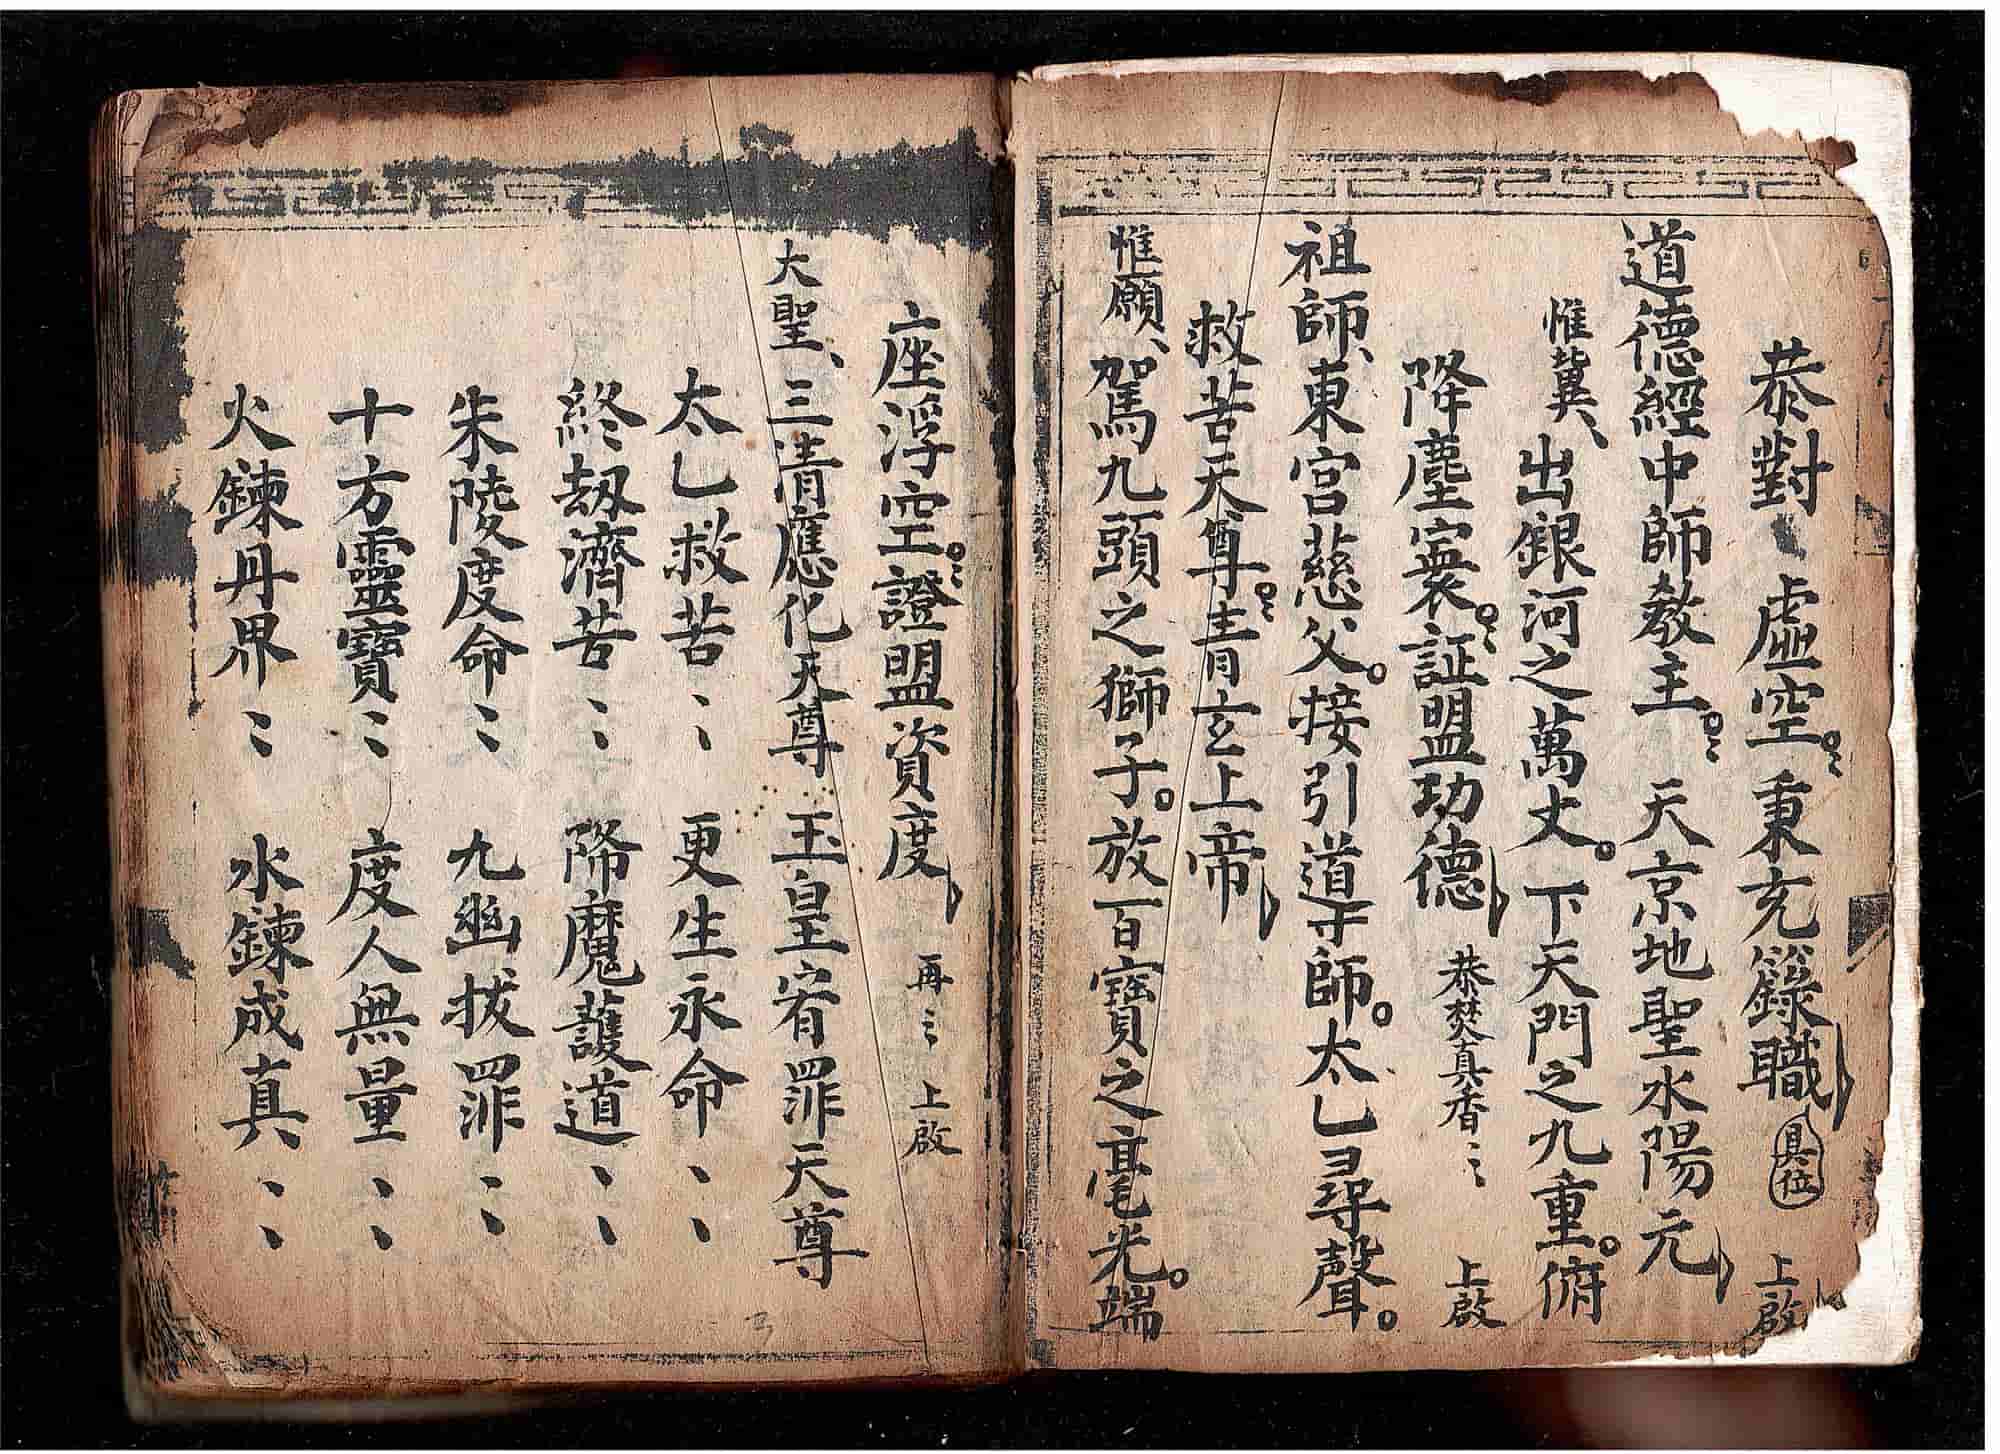 恭對 虛空。秉充籙職 具位 上啟
道德經中師教主。 天京地聖水陽元
惟冀、出銀河之萬丈。下天門之九重。俯
降塵寰。証盟功德 恭焚真香〻 上啟
祖師、東宮慈父。接引導師。太乙尋聲。
救苦天尊。青玄上帝
惟願、駕九頭之獅子。放百寶之毫光。端
座浮空。證盟資度 再〻 上啟
大聖、三清應化天尊 玉皇宥罪天尊
太乙救苦〻 更生永命〻
終劫濟苦〻 降魔護道〻
朱陵度命〻 九幽拔罪〻
十方靈寶〻 度人無量〻
火鍊丹界〻 水鍊成真〻